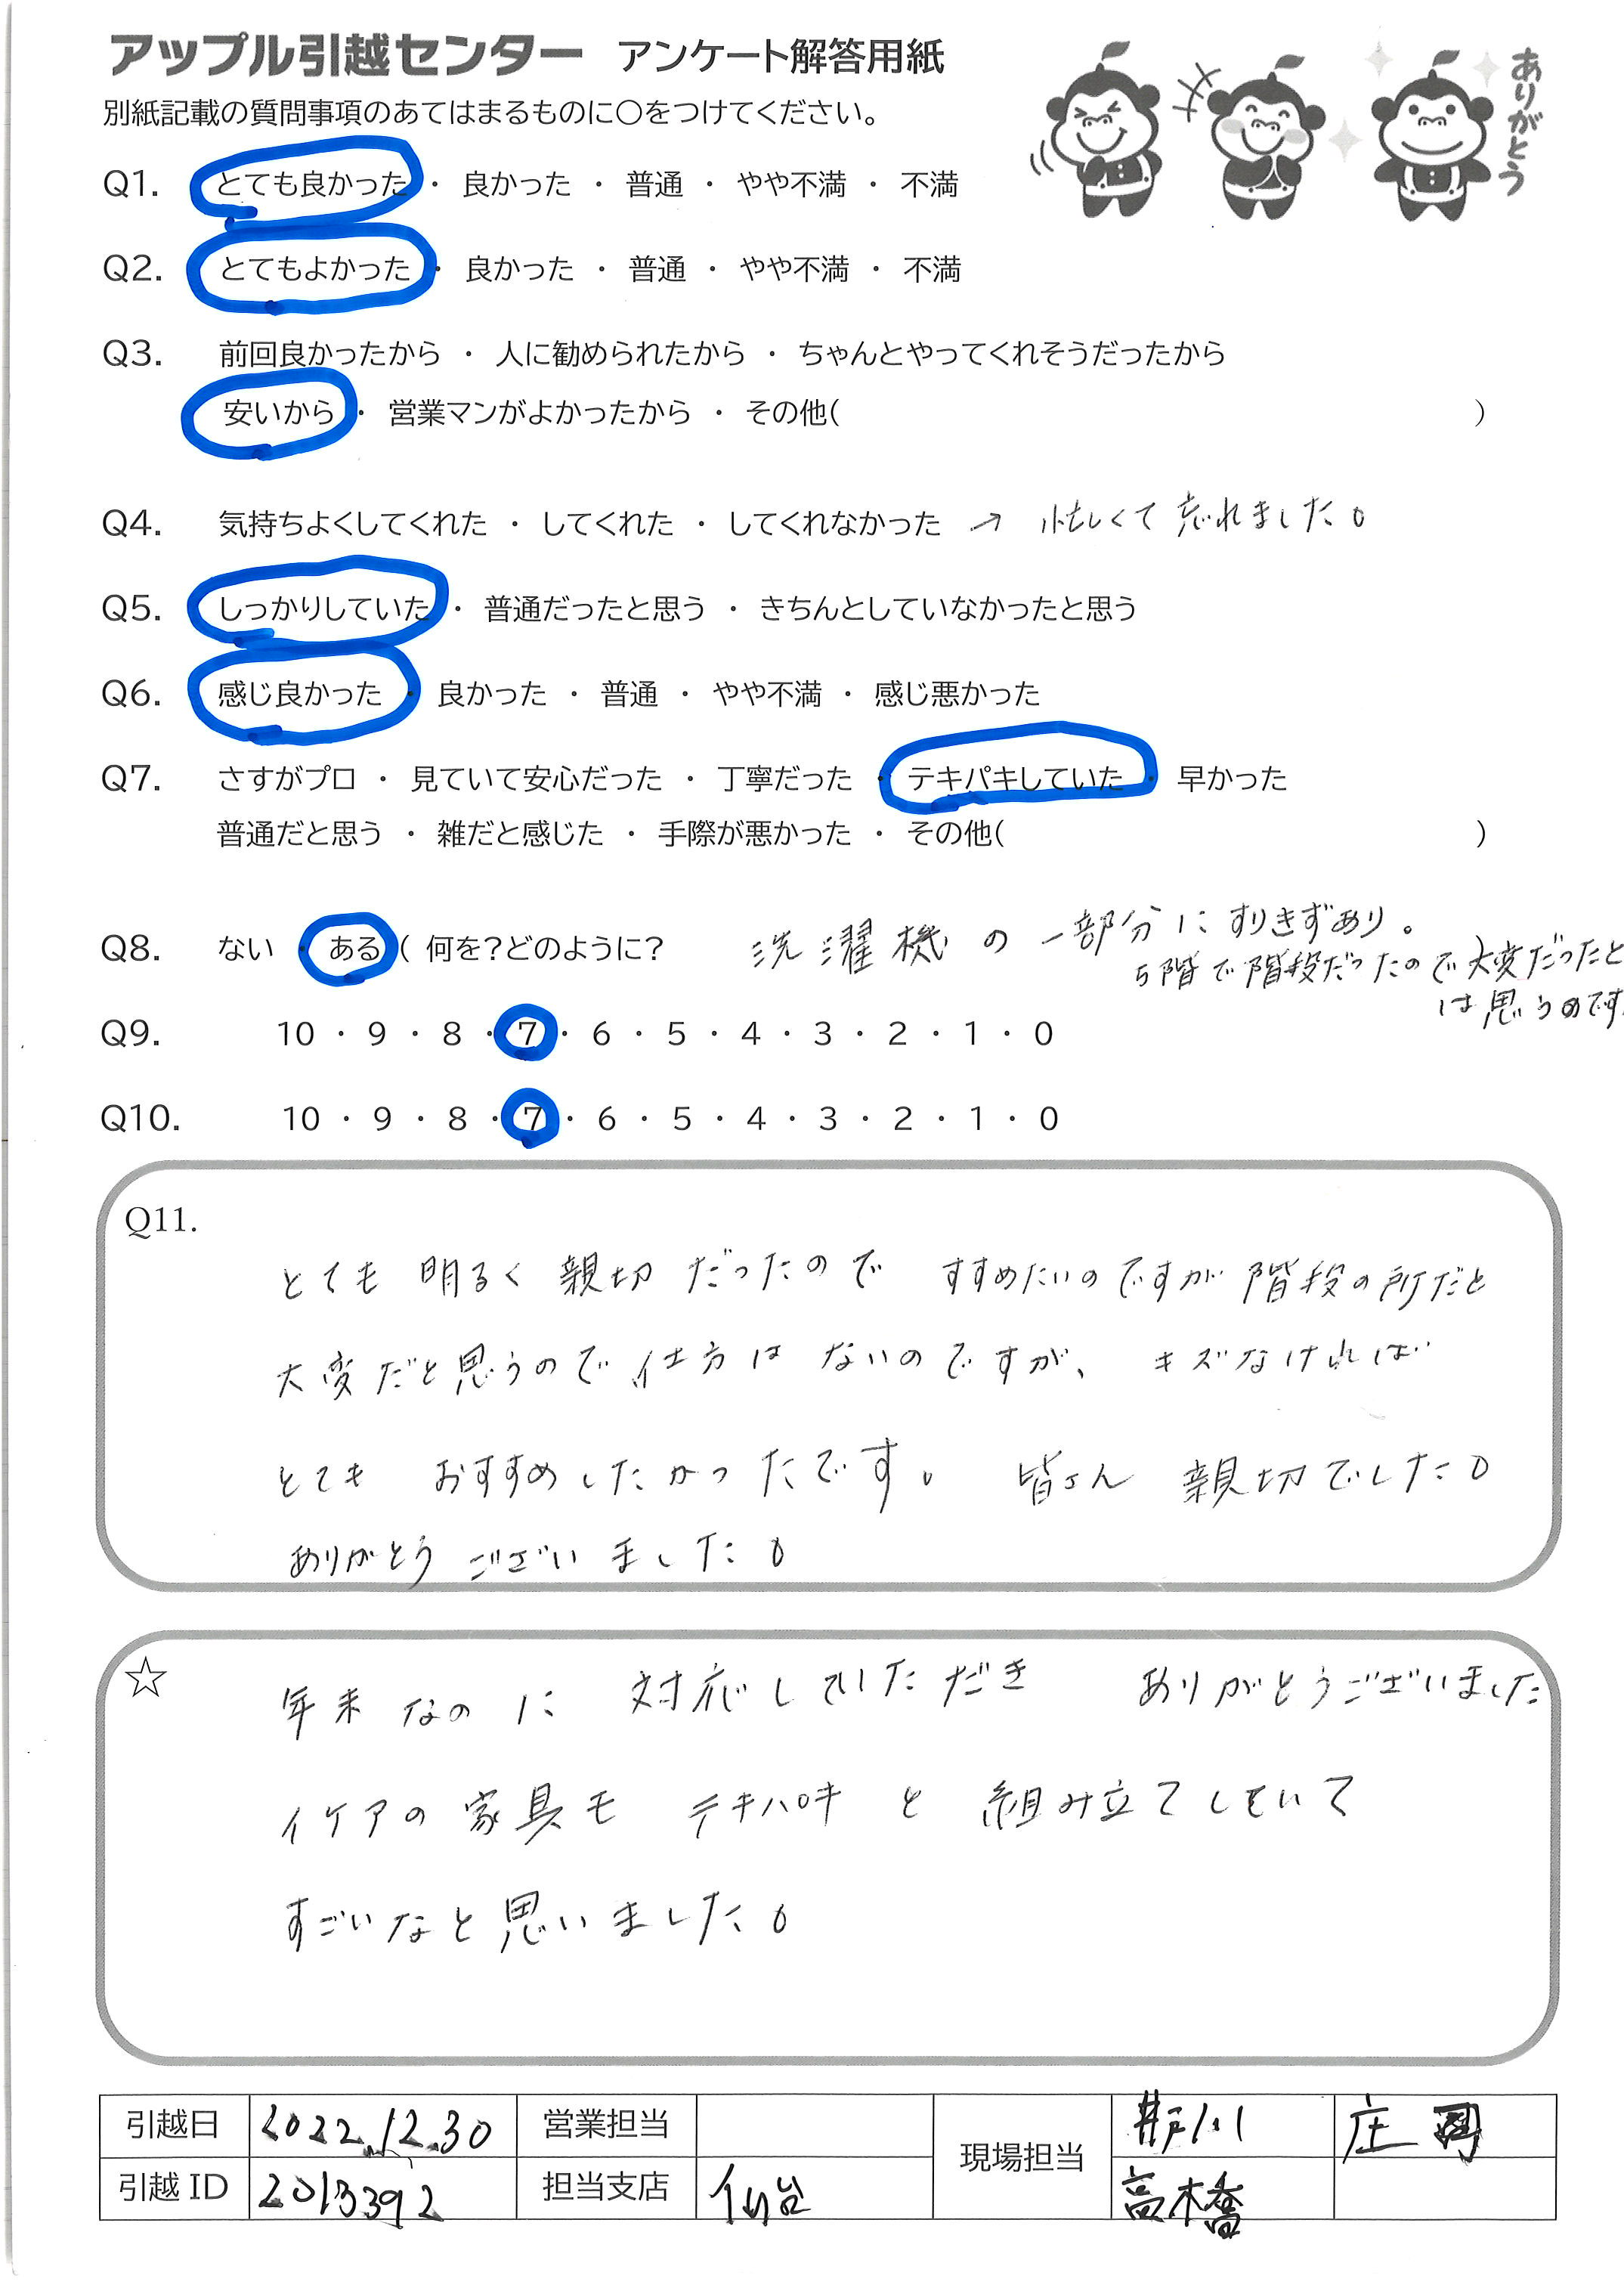 アップル引越センター アンケート解答用紙
ありがとう
別紙記載の質問事項のあてはまるものに〇をつけてください。
Q1. とても良かった ・ 良かった ・ 普通 ・ やや不満 ・ 不満
Q2. とてもよかった ・ 良かった ・ 普通 ・ やや不満 ・ 不満
Q3. 前回良かったから ・ 人に勧められたから ・ ちゃんとやってくれそうだったから
安いから ・ 営業マンがよかったから ・ その他( )
Q4. 気持ちよくしてくれた ・ してくれた ・ してくれなかった → 忙しくて忘れました。
Q5. しっかりしていた ・ 普通だったと思う ・ きちんとしていなかったと思う
Q6. 感じ良かった ・ 良かった ・ 普通 ・ やや不満 ・ 感じ悪かった
Q7. さすがプロ ・ 見ていて安心だった ・ 丁寧だった ・ テキパキしていた ・ 早かった
普通だと思う ・ 雑だと感じた ・ 手際が悪かった ・ その他( )
Q8. ない ・ ある ( 何を?どのように? 洗濯機の一部分にすりきずあり。
5階で階段だったので大変だったと
は思うのです
Q9. 10 ・ 9 ・ 8 ・ 7 ・ 6 ・ 5 ・ 4 ・ 3 ・ 2 ・ 1 ・ 0
Q10. 10 ・ 9 ・ 8 ・ 7 ・ 6 ・ 5 ・ 4 ・ 3 ・ 2 ・ 1 ・ 0
Q11.
とても 明るく 親切 だったので すすめたいのですが 階段の所だと
大変だと思うので仕方は ないのですが、 キズなければ
とても おすすめしたかったです。 皆さん 親切でした。
ありがとう ございました。
☆
年末なのに 対応していただき ありがとうございました
イケアの家具も テキパキと 組み立てしていて
すごいなと思いました。
引越日 2022.12.30 営業担当 現場担当 井戸川 庄
引越ID 2013392 担当支店 仙台 高橋